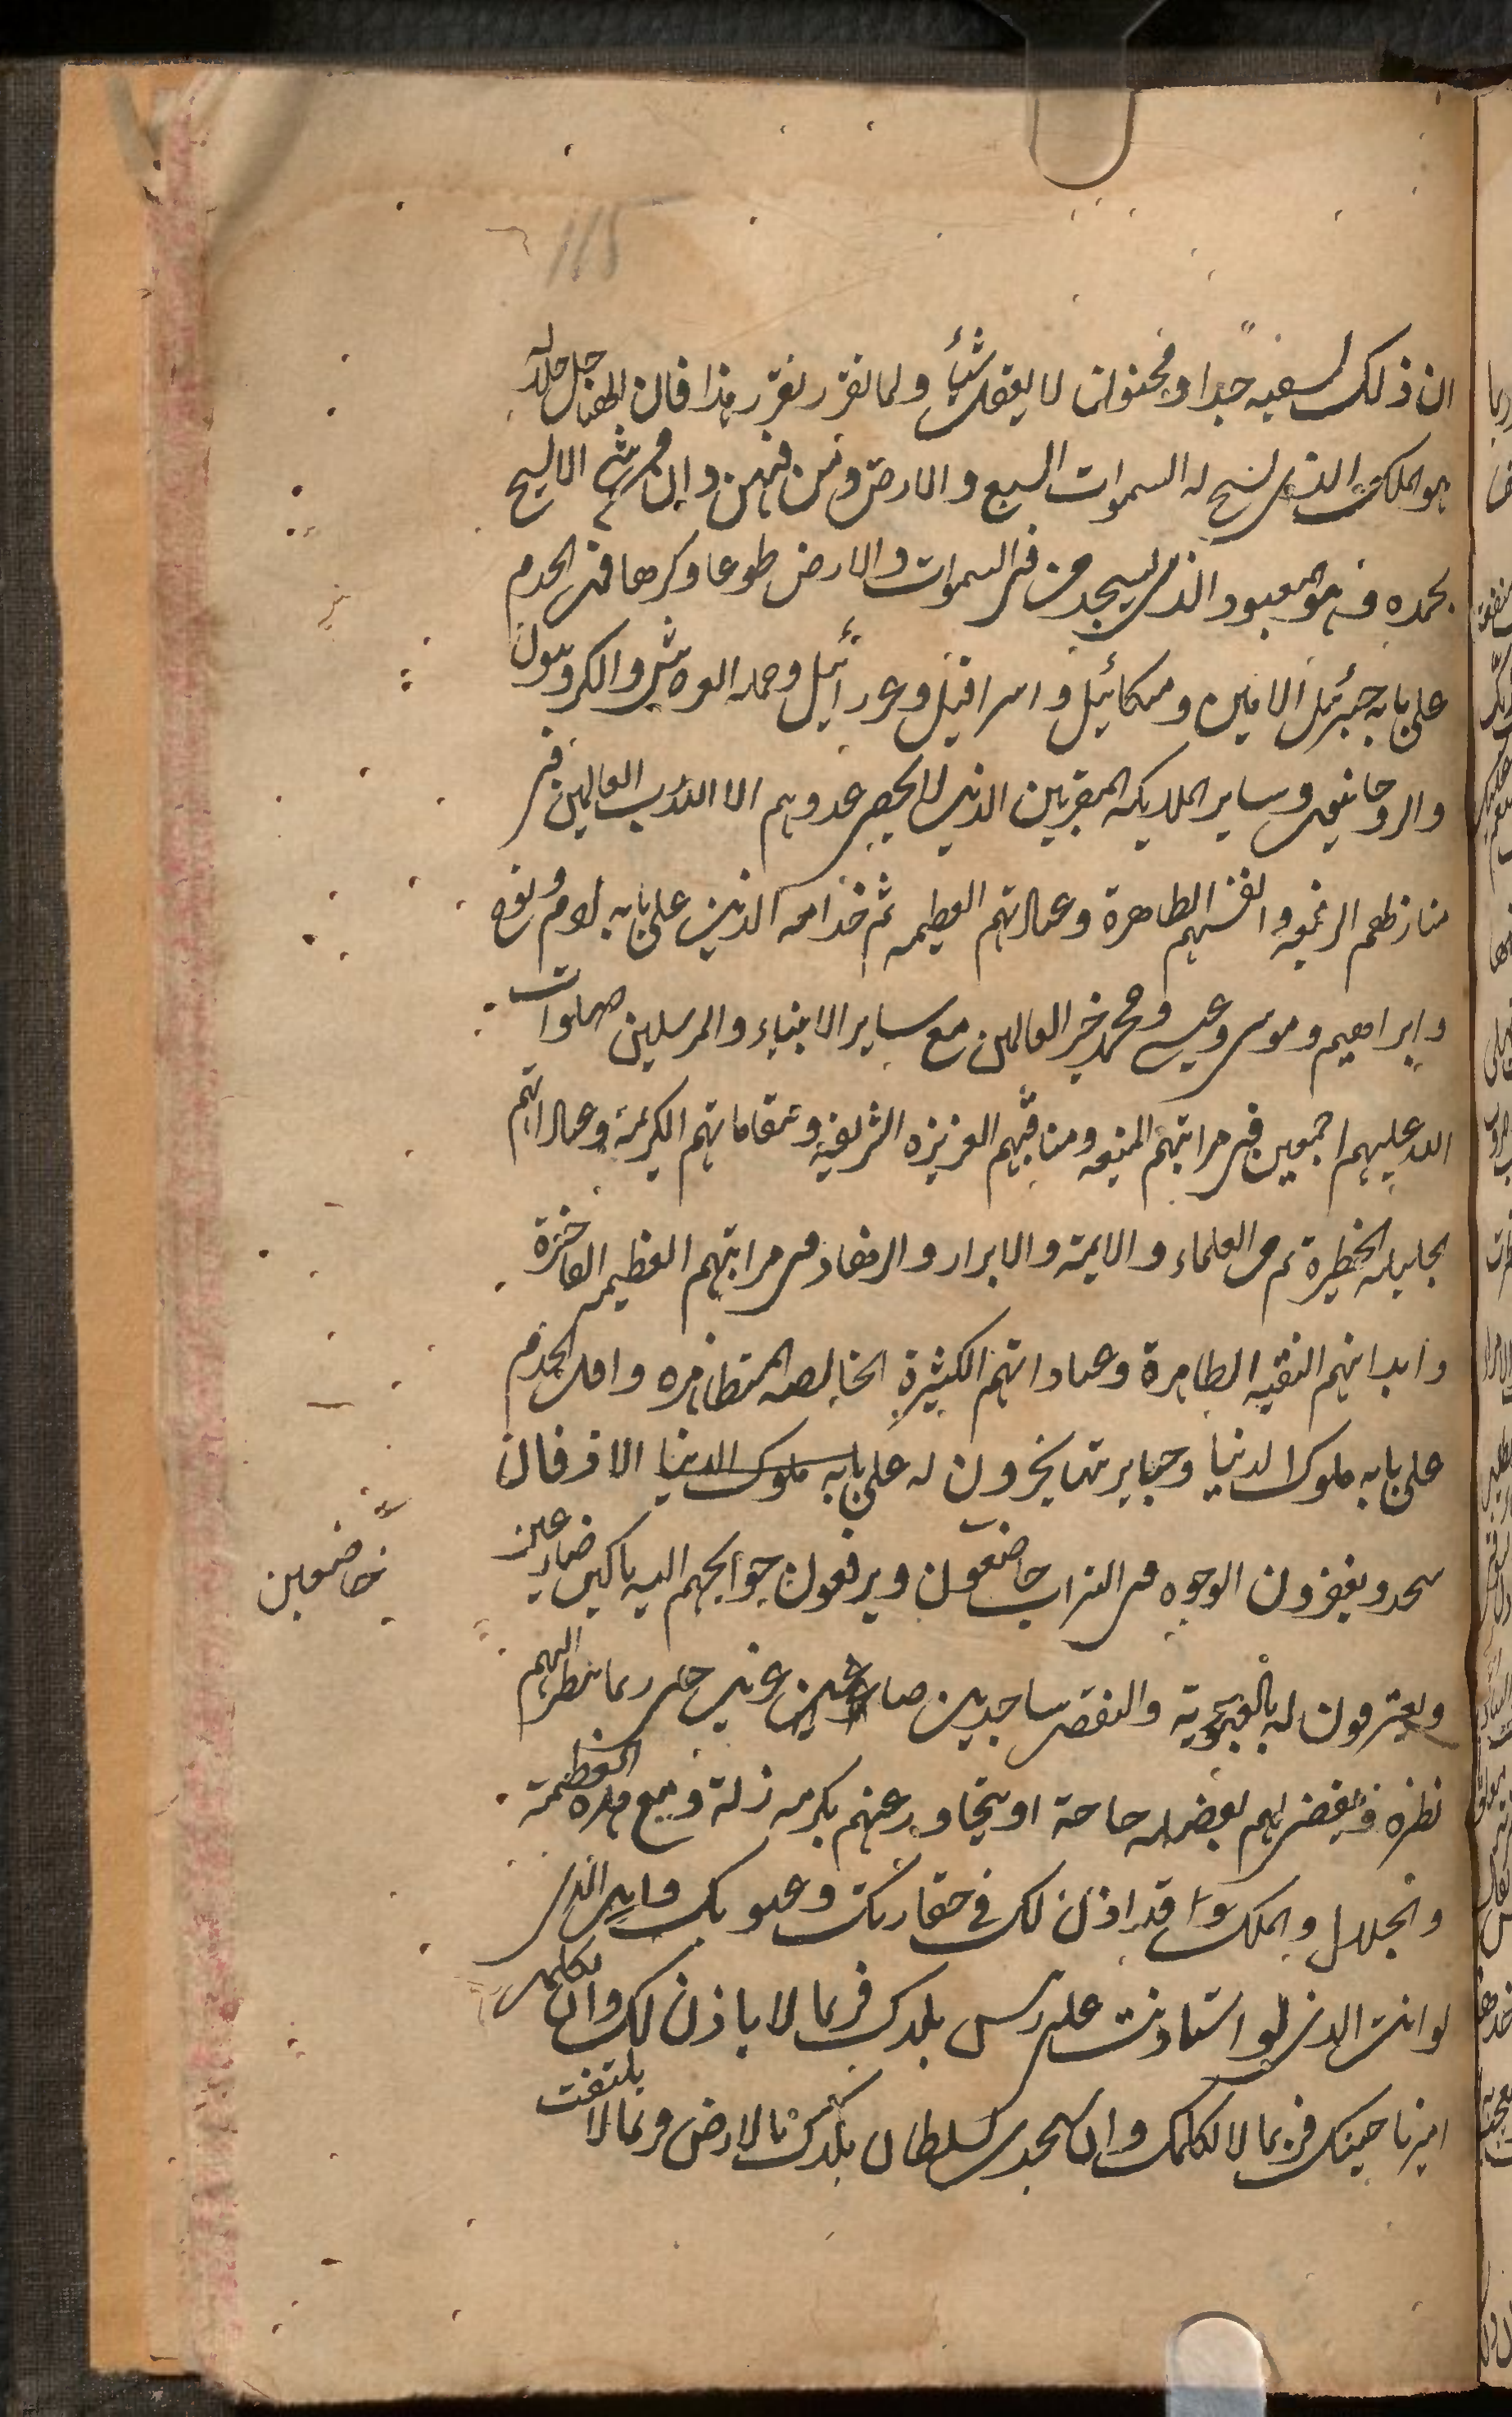 115
ان ذلك لسفيه جدا ومجنون لا يعقل شيئا ولما تقرر تقرر هذا فان الهنا جل جلاله
هو الملك الذى تسبح له السموات السبع والارض ومن فيهن وان من شئ الا يسبح
بحمده وهو المعبود الذى يسجد من فى السموات والارض طوعا وكرها فمن الخدم
على بابه جبرئيل الامين وميكائيل واسرافيل وعزرائيل وحملة العرش والكروبيون
والروحانيون وساير الملايكة المقربين الذين لا يحصى عددهم الا الله رب العالمين فى
منازلهم الرفيعه وانفسهم الطاهرة وعباداتهم العظيمه ثم خدامه الذين على بابه ادم ونوح
وابراهيم وموسى وعيسى ومحمد خير العالمين مع ساير الانبياء والمرسلين صلوات
الله عليهم اجمعين فى مراتبهم المنيعه ومناقبهم العزيزه الشريفة ومقاماتهم الكريمة وعباداتهم
الجليله الخطيرة ثم العلماء والايمة والابرار والزهاد فى مراتبهم العظيمه الفاخرة
وابدانهم النقيه الطاهرة وعباداتهم الكثيرة الخالصه المتظاهره واقل الخدم
على بابه ملوك الدنيا وجبابرتها يخرون له على بابه ملوك الدنيا الاذقان
سجدا ويعفرون الوجوه فى التراب خاضعون ويرفعون حوايجهم اليه باكين ضارعين
خاضعين
ويعترفون له بالعبودية والنقص ساجدين صاغرين حتى ربما ينظر اليهم
نظرة فيقضى لهم بفضله حاجة او يتجاوز عنهم بكرمه زلة ومع هذه العظمة
والجلال والملك قد اذن لك فى حقارتك وعيوبك وانت الذى
لو استاذنت على رئيس بلدك فربما لا ياذن لك وان تكلم
امير ناحيتك فربما لا يكلمك وان سجدت لسلطان بلدك بالارض وربما لا يلتفت